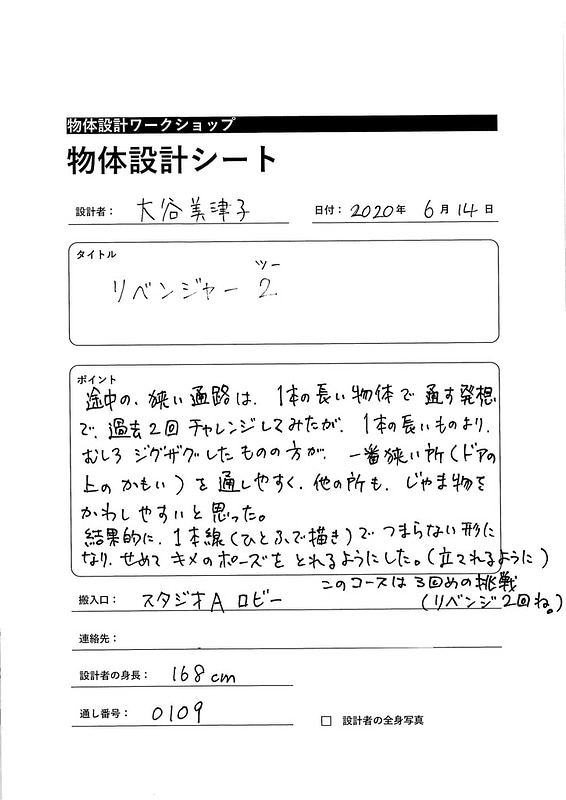 物体設計ワークショップ
物体設計シート
設計者： 大谷美津子 日付： 2020年 6月 14日
タイトル
ツー
リベンジャー 2
ポイント
途中の、狭い通路は、1本の長い物体で通す発想
で、過去2回チャレンジしてみたが、1本の長いものより、
むしろジグザグしたものの方が、一番狭い所（ドアの
上のかもい）を通しやすく、他の所も、じゃま物を
かわしやすいと思った。
結果的に、1本線（ひとふで描き）でつまらない形に
なり、せめてキメのポーズをとれるようにした。（立てれるように）
このコースは3回めの挑戦
（リベンジ2回ね。）
搬入口： スタジオA ロビー
連絡先：
設計者の身長： 168cm
通し番号： 0109
□ 設計者の全身写真